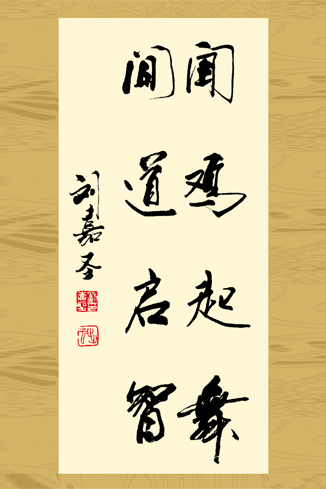 闻鸡起舞
闻道启智
刘嘉圣